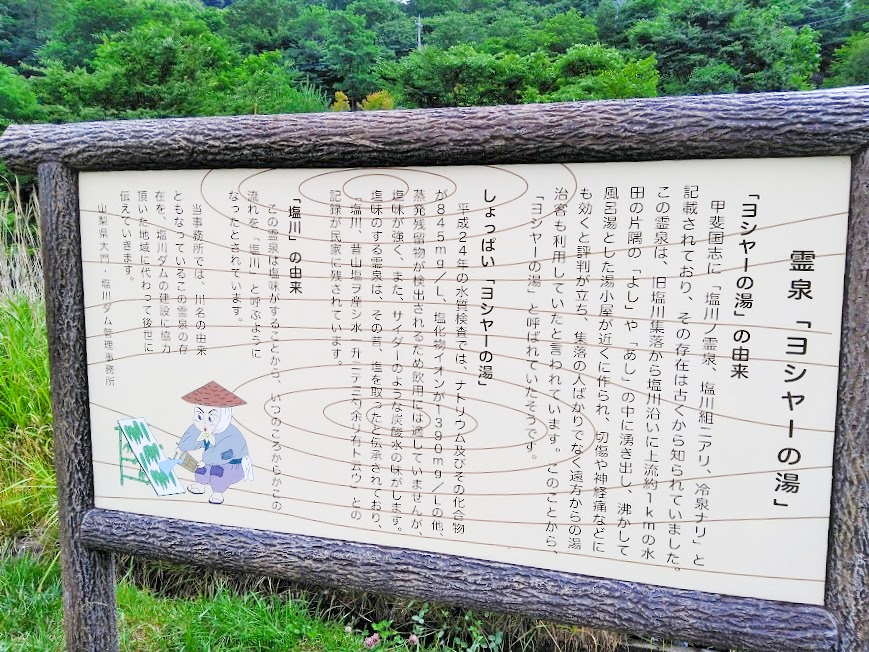 霊泉「ヨシヤーの湯」
「ヨシヤーの湯」の由来
甲斐国志に「塩川ノ霊泉、塩川組ニアリ、冷泉ナリ」と
記載されており、その存在は古くから知られていました。
この霊泉は、旧塩川集落から塩川沿いに上流約1kmの水
田の片隅の「よし」や「あし」の中に湧き出し、沸かして
風呂湯とした湯小屋が近くに作られ、切傷や神経痛などに
も効くと評判が立ち、集落の人ばかりでなく遠方からの湯
治客も利用していたと言われています。このことから、
「ヨシヤーの湯」と呼ばれていたそうです。
しょっぱい「ヨシヤーの湯」
平成24年の水質検査では、ナトリウム及びその化合物
が845mg/L、塩化物イオンが1390mg/Lの他、
蒸発残留物が検出されるため飲用には適していませんが、
塩味が強く、また、サイダーのような炭酸水の味がします。
塩味のする霊泉は、その昔、塩を取ったと伝承されており、
「塩川、昔山塩ヲ産シ水一升ニテ三勺余リ有トムウ」との
記録が民家に残されています。
「塩川」の由来
この霊泉は塩味がすることから、いつのころからかこの
流れを「塩川」と呼ぶように
なったとされています。
当事務所では、川名の由来
ともなっているこの霊泉の存
在を、塩川ダムの建設に協力
頂いた地域に代わって後世に
伝えていきます。
山梨県大門・塩川ダム管理事務所